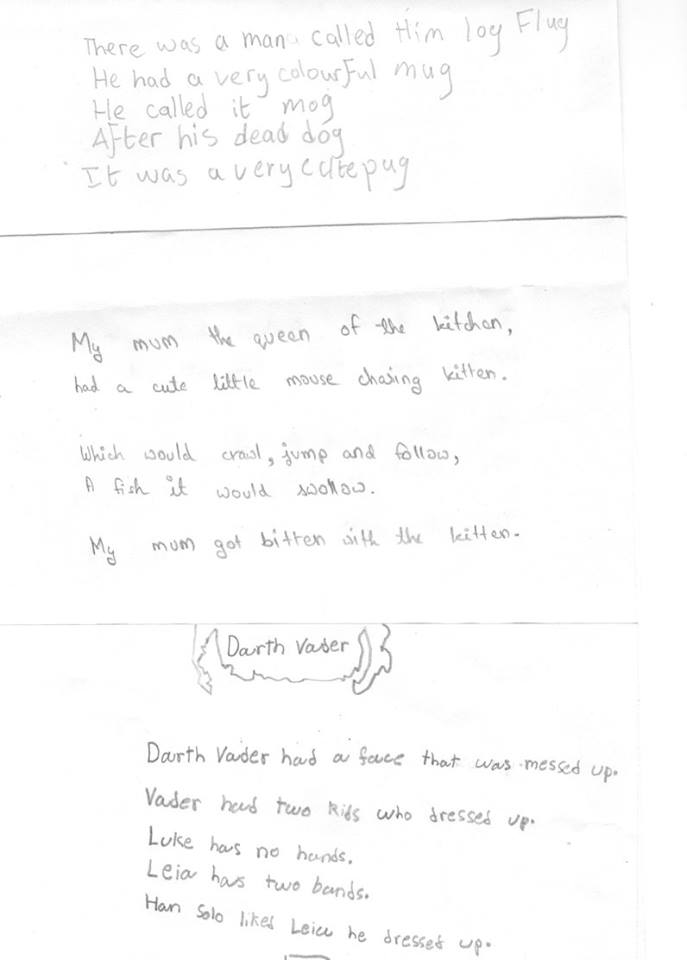 There was a man called Him log Flug
He had a very colourful mug
He called it mog
After his dead dog
It was a very cute pug
My mum the queen of the kitchen,
had a cute little mouse chasing kitten.
Which would crawl, jump and follow,
A fish it would swollow.
My mum got bitten with the kitten.
Darth Vader
Darth Vader had a face that was messed up.
Vader had two kids who dressed up.
Luke has no hands.
Leia has two bands.
Han Solo likes Leia he dressed up.